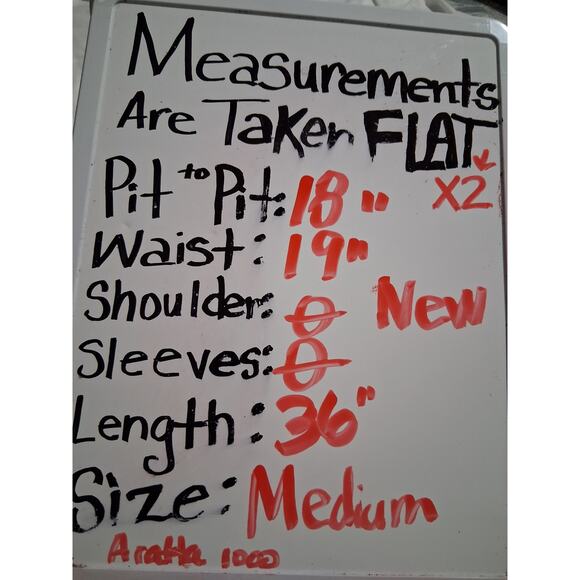 Measurements
Are Taken FLAT
X2
Pit to Pit: 18"
Waist: 19"
Shoulder: 0 New
Sleeves: 0
Length: 36"
Size: Medium
Aratta 1000